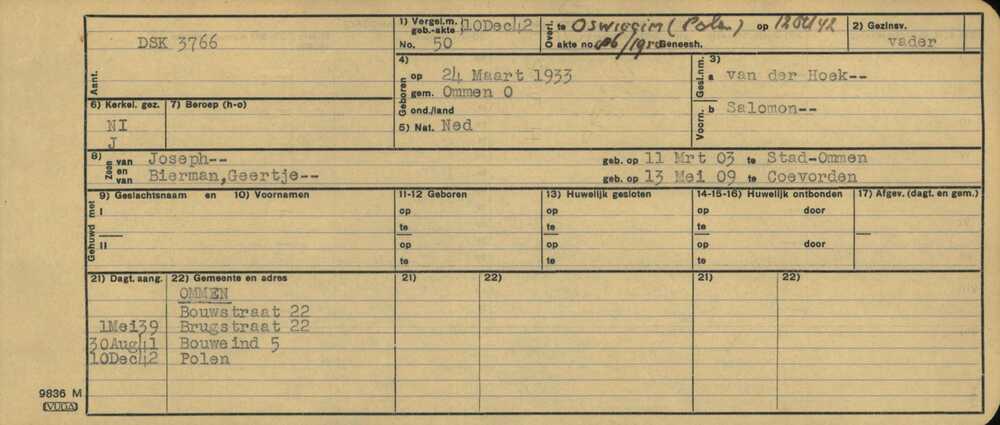 DSK 3766
Aant.
1) Vergel.m. geb.-akte 10Dec42
No. 50
Overl. te Oswieçim (Polen) op 12 Oct 42
Overl. akte no. /1950 Geneesh.
2) Gezinsv.
vader
4) Geboren
op 24 Maart 1933
gem. Ommen O
ond./land
5) Nat. Ned
3)
Gesl.nm. a van der Hoek--
Voorn. b Salomon--
6) Kerkel. gez. 7) Beroep (h-o)
NI
J
8) Zoon van Joseph-- geb. op 11 Mrt 03 te Stad-Ommen
en van Bierman,Geertje-- geb. op 13 Mei 09 te Coevorden
9) Geslachtsnaam en 10) Voornamen 11-12 Geboren 13) Huwelijk gesloten 14-15-16) Huwelijk ontbonden 17) Afgev. (dagt. en gem.)
Gehuwd met
I op op op door
te te te
II op op op door
te te te
21) Dagt. aang. 22) Gemeente en adres 21) 22) 21) 22)
OMMEN
Bouwstraat 22
1Mei39 Brugstraat 22
30Aug41 Bouweind 5
10Dec42 Polen
9836 M
VUGA